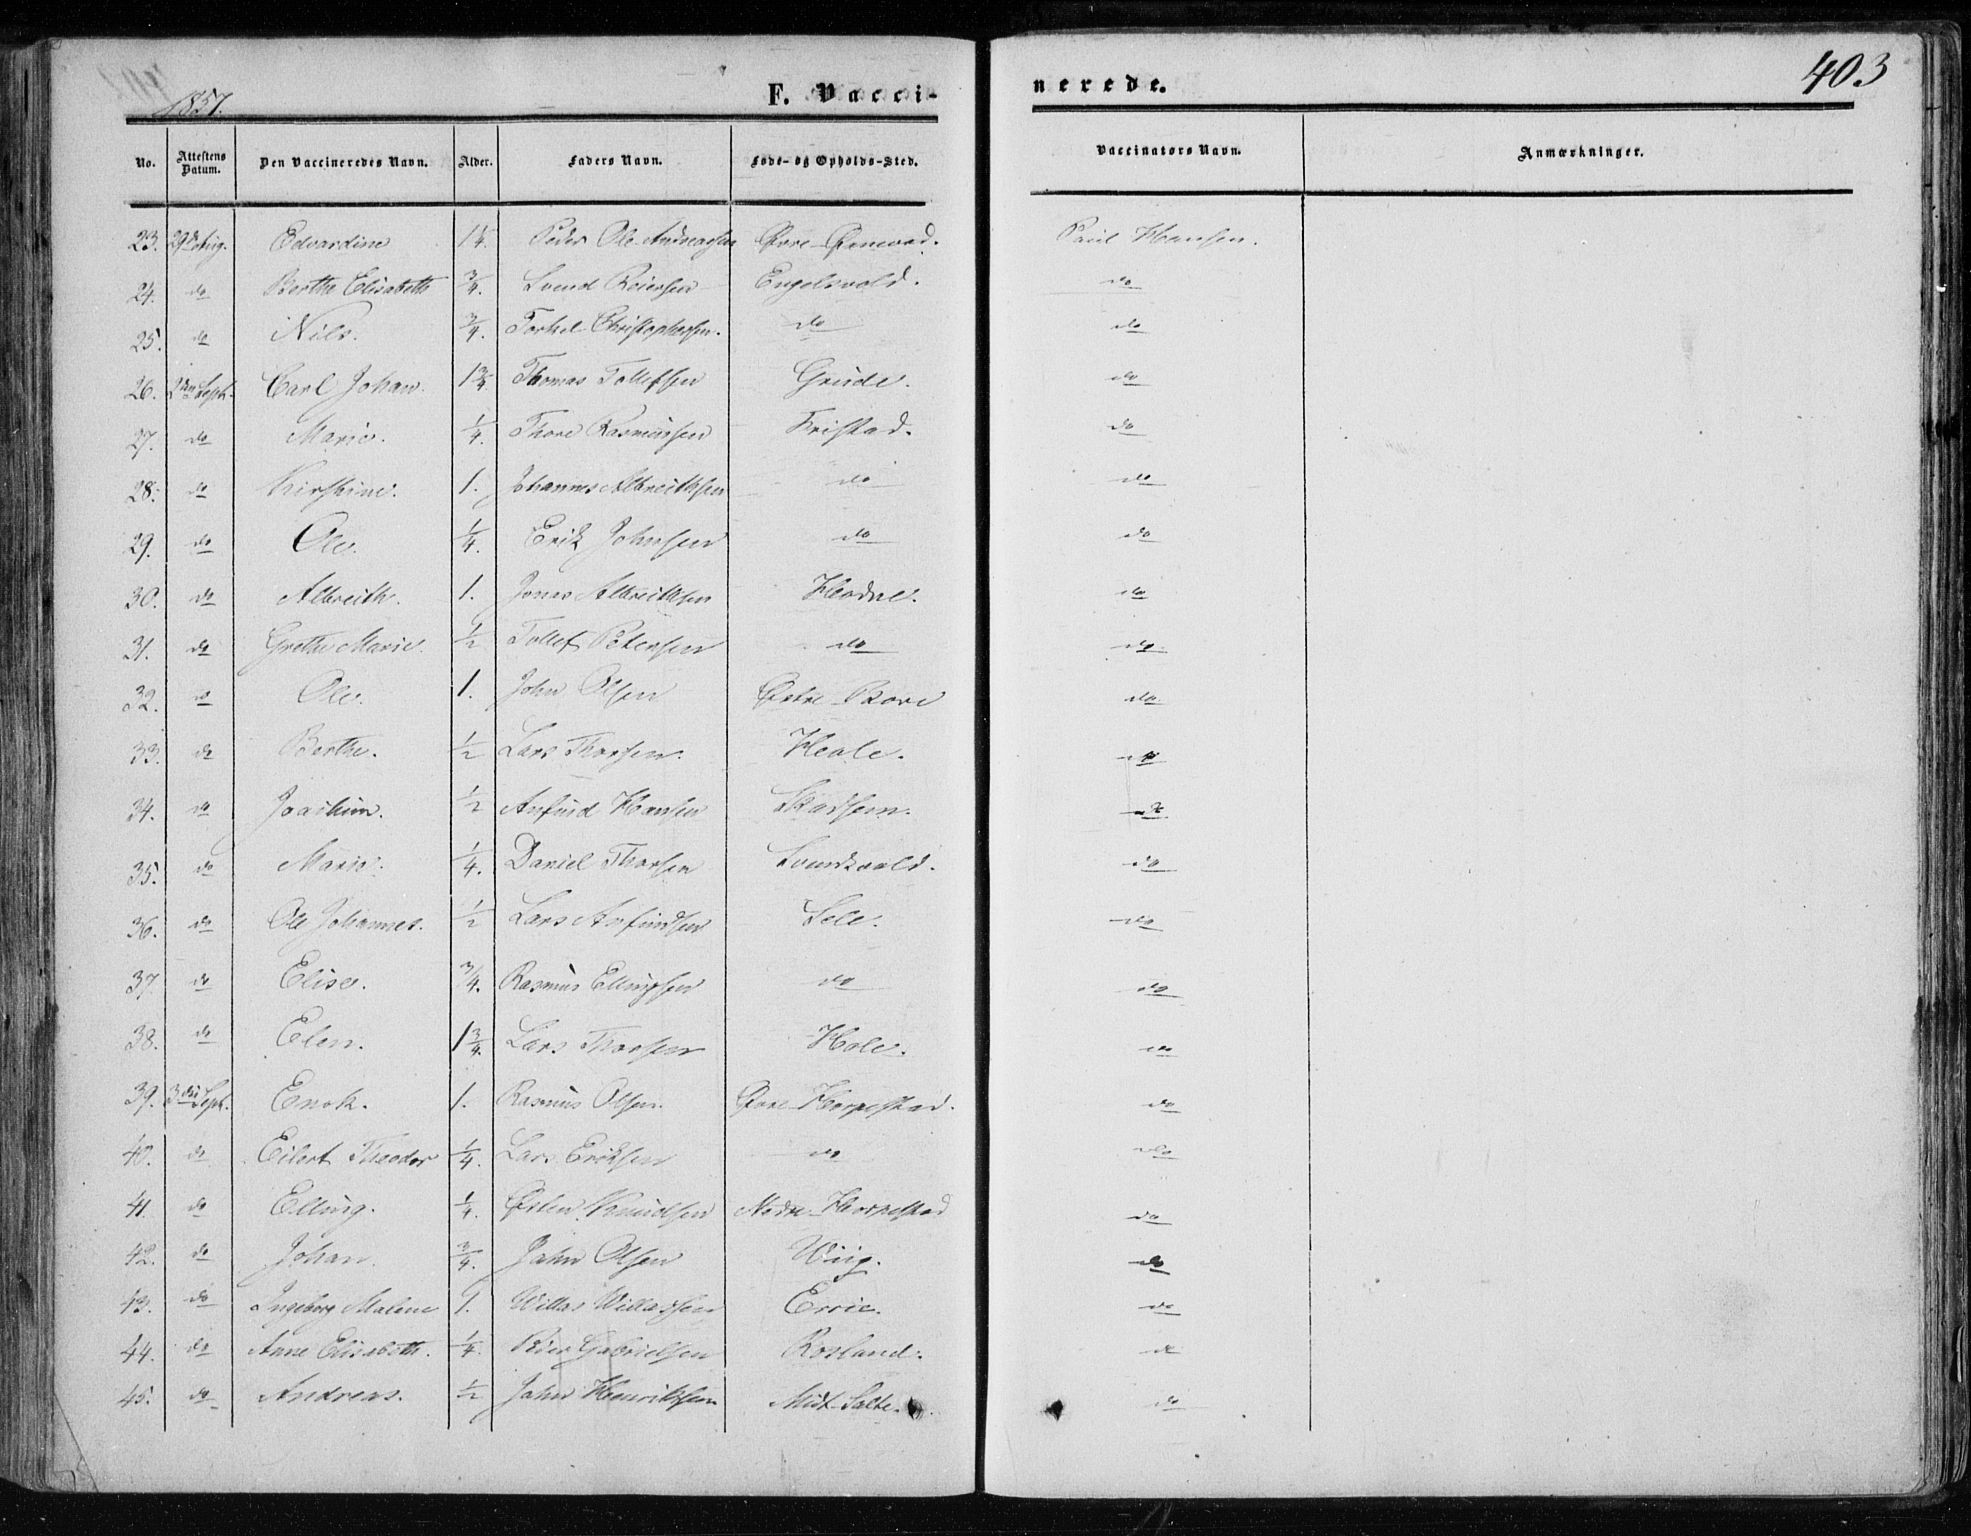 1857.
F. Vacci-
nerede.
403
No. Attestens Datum. Den Vaccineredes Navn. Alder. Faders Navn. Føde- og Opholds-Sted. Vaccinators Navn. Anmærkninger.
23. 29de Aug. Edvardine 1 1/4. Peder Ole Andreassen Øvre Paul Hansen.
24. do Berthe Elisabeth 3/4. Svend Reiersen Engelsvold. do
25. do Nils. 3/4. Torkel Christophersen. do do
26. 2den Septr. Carl Johan. 1 3/4. Thomas Tollefsen Grude. do
27. do Marie. 1/4. Thore Rasmussen Friestad. do
28. do Kirstine. 1. Johannes Albreithsen do do
29. do Ole. 1/4. Erik Johnsen do do
30. do Albreith. 1. Jonas Albreithsen Hodne. do
31. do Grethe Marie. 1/2 Tollef Petersen do do
32. do Ole. 1. John Olsen Østre Bore do
33. do Berthe. 1/2 Lars Thorsen. Hole. do
34. do Joachim. 1/2 Anfind Hansen Skadsem. do
35. do Marie. 1/4. Daniel Thorsen do
36. do Ole Johannes. 1/2 Lars Anfindsen Sele. do
37. do Elise. 3/4. Rasmus Ellingsen do do
38. do Elen. 1 3/4. Lars Thorsen Hole. do
39. 3die Septr. Enok. 1. Rasmus Olsen. Øvre Horpestad. do
40. do Eilert Theodor 1/4. Lars Eriksen do do
41. do Elling. 1/4. Østen Knudsen Nedre Horpestad do
42. do Johan. 3/4. John Olsen Wiig. do
43. do Ingeborg Malene 1. Willas Willassen Ervie. do
44. do Anne Elisabeth. 1/4. Gabrielsen Rosland. do
45. do Andreas. 1/2 John Henriksen Midt Salte. do